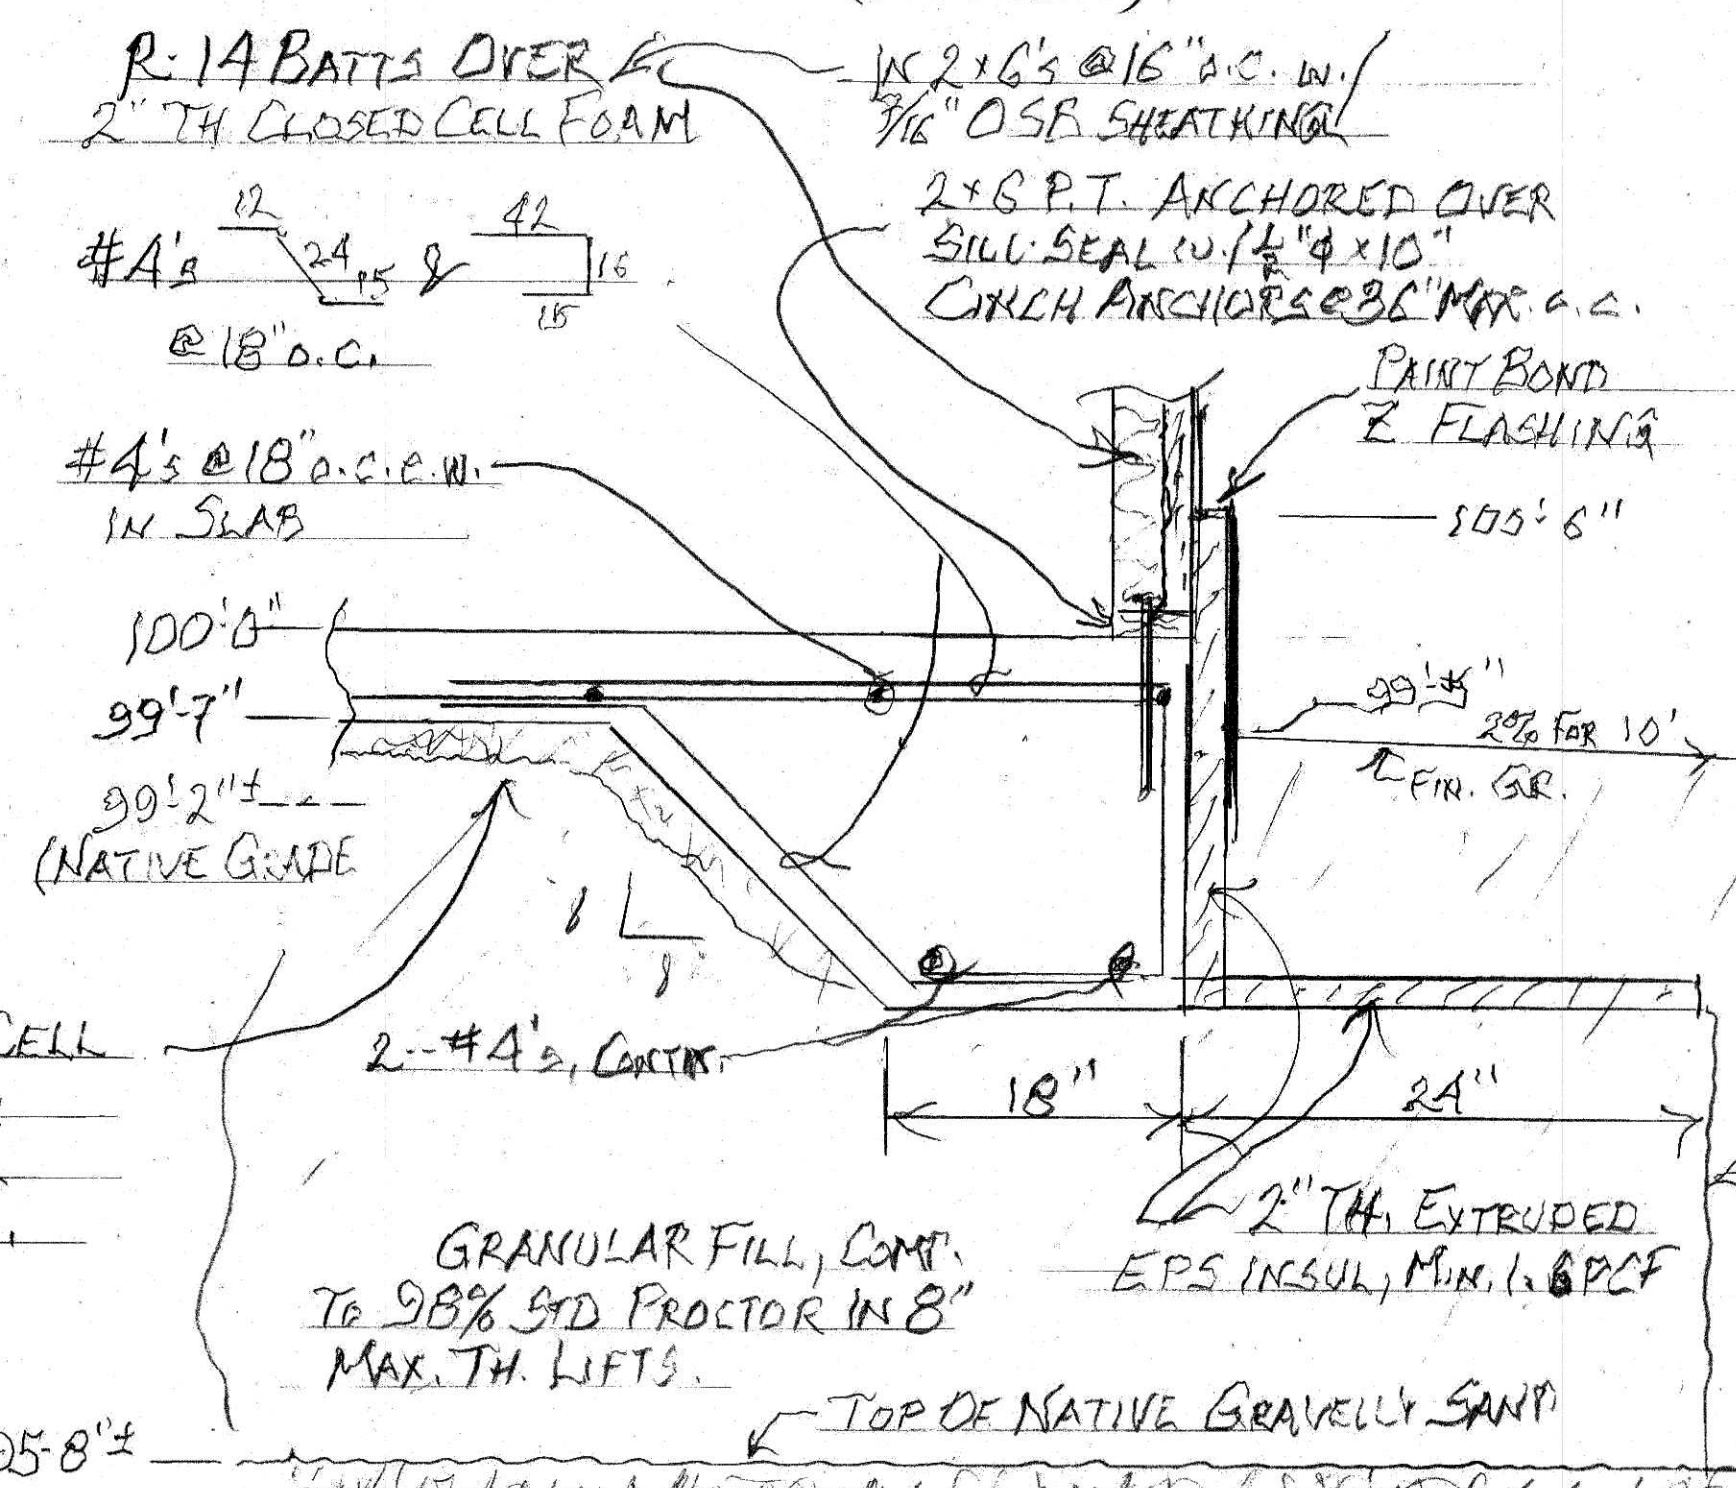 R-14 BATTS OVER
2" TH CLOSED CELL FOAM
IN 2x6's @ 16" o.c. w/
7/16" OSB SHEATHING
2x6 P.T. ANCHORED OVER
SILL SEAL w/ 1/2" φ x 10"
CINCH ANCHORS @ 36" MAX. o.c.
12
24
15
#4's
&
42
16
15
@ 18" o.c.
PAINT BOND
Z FLASHING
#4's @ 18" o.c.e.w.
IN SLAB
105'-6"
100'-0"
99'-7"
99'-2"±
(NATIVE GRADE
2% FOR 10'
FIN. GR.
8
8
CELL
2--#4's, CONTIN.
18"
24"
2" TH. EXTRUDED
EPS INSUL, MIN. 1.6 PCF
GRANULAR FILL, COMP.
TO 98% STD PROCTOR IN 8"
MAX. TH. LIFTS.
TOP OF NATIVE GRAVELLY SAND
95-8"±